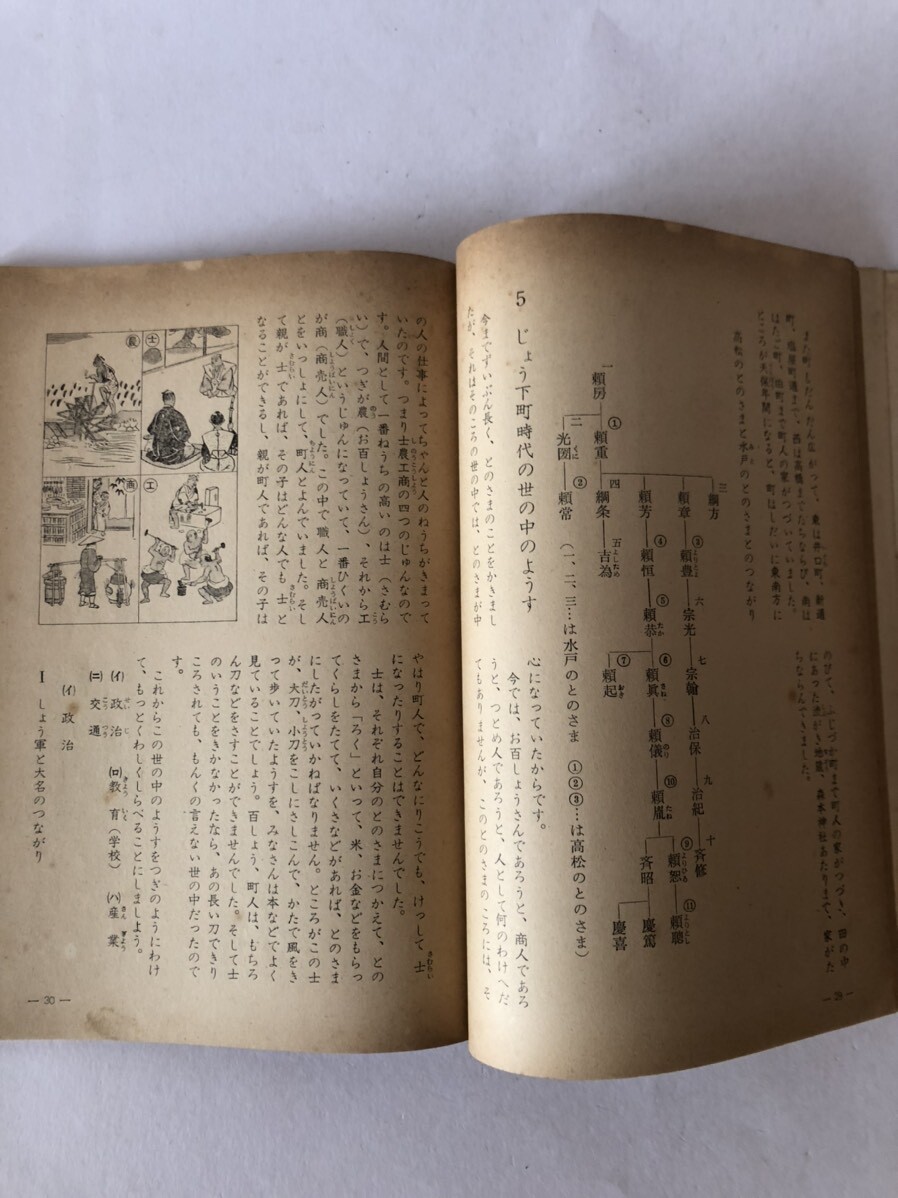 また町もだんだん広がって、東は井口町、新通
町、塩屋町通まで、西は高橋までたちならび、南は
はたご町、旅町まで町人の家がつづいていました。
ところが天保年間になると、町はしだいに東南方に
のびて、ふじづか町まで町人の家がつづき、田の中
にあった出がき地蔵、森本神社あたりまで、家がた
ちならんできました。
高松のとのさまと水戸のとのさまとのつながり
三 綱方
頼章 ③ 頼豊 六 宗光 七 宗翰 八 治保 九 治紀 十 斉修
頼芳 ④ 頼恒 ⑤ 頼恭 ⑥ 頼眞 ⑧ 頼儀 ⑩ 頼胤 ⑨ 頼恕 ⑪ 頼聰
一 頼房 ① 頼重 四 綱条 五 吉為 ⑦ 頼起 斉昭 慶篤
二 光圀 ② 頼常 慶喜
(一、二、三…は水戸のとのさま ①②③…は高松のとのさま)
5 じょう下町時代の世の中のようす
今までずいぶん長く、とのさまのことをかきまし
たが、それはそのころの世の中では、とのさまが中
心になっていたからです。
今では、お百しょうさんであろうと、商人であろ
うと、つとめ人であろうと、人として何のわけへだ
てもありませんが、このとのさまのころには、そ
の人の仕事によってちゃんと人のねうちがきまって
いたのです。つまり士農工商の四つのじゅんなので
す。人間として一番ねうちの高いのは士(さむら
い)で、つぎが農(お百しょうさん)、それから工
(職人)というじゅんになっていて、一番ひくいの
が商(商売人)でした。この中で職人と商売人
とをいっしょにして、町人とよんでいました。そし
て親が士であれば、その子はどんな人でも士と
なることができるし、親が町人であれば、その子は
士
農
工
商
やはり町人で、どんなにりこうでも、けっして士
になったりすることはできませんでした。
士は、それぞれ自分のとのさまにつかえて、との
さまから「ろく」といって、米、お金などをもらっ
てくらしをたてて、いくさなどがあれば、とのさま
にしたがっていかねばなりません。ところがこの士
が、大刀、小刀をこしにさしこんで、かたで風をき
って歩いていたようすを、みなさんは本などでよく
見ていることでしょう。百しょう、町人は、もちろ
ん刀などをさすことができませんでした。そして士
のいうことをきかなかったなら、あの長い刀できり
ころされても、もんくの言えない世の中だったので
す。
これからこの世の中のようすをつぎのようにわけ
て、もっとくわしくしらべることにしましよう。
(イ)政治 (ロ)教育(学校) (ハ)産業
(ニ)交通
(イ)政治
I しょう軍と大名のつながり
— 30 —